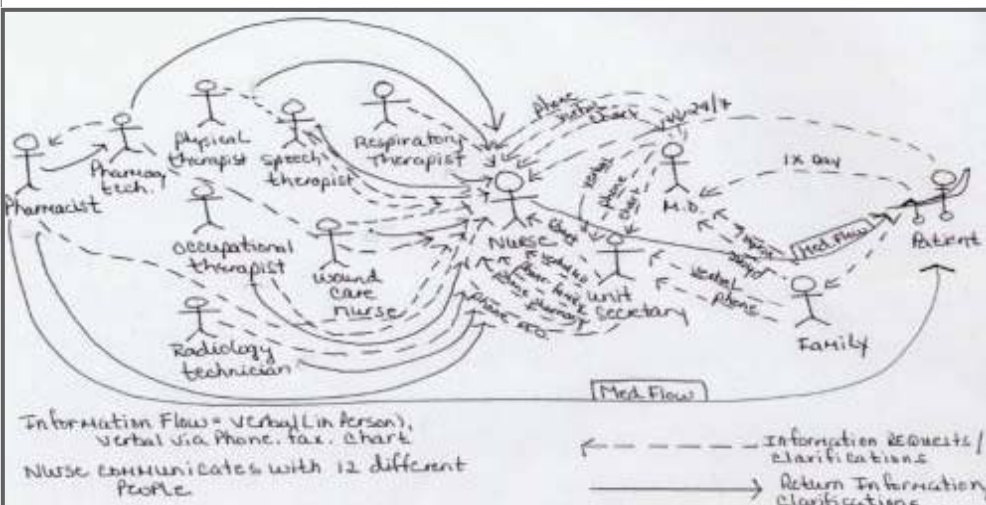 Pharmacist
Pharmacy
tech.
Physical
therapist
Speech
therapist
Respiratory
Therapist
Occupational
therapist
Wound
care
nurse
Radiology
technician
Nurse
phone
verbal
chart
24/7
verbal
phone
chart
M.D.
1X Day
Med. Flow
Patient
Chart
verbal
phone
unit
secretary
verbal
phone
Family
Med. Flow
Information Flow = Verbal (in Person),
Verbal via Phone. fax. Chart
Nurse communicates with 12 different
People
Information REQUESTS/
Clarifications
Return Information/
Clarifications